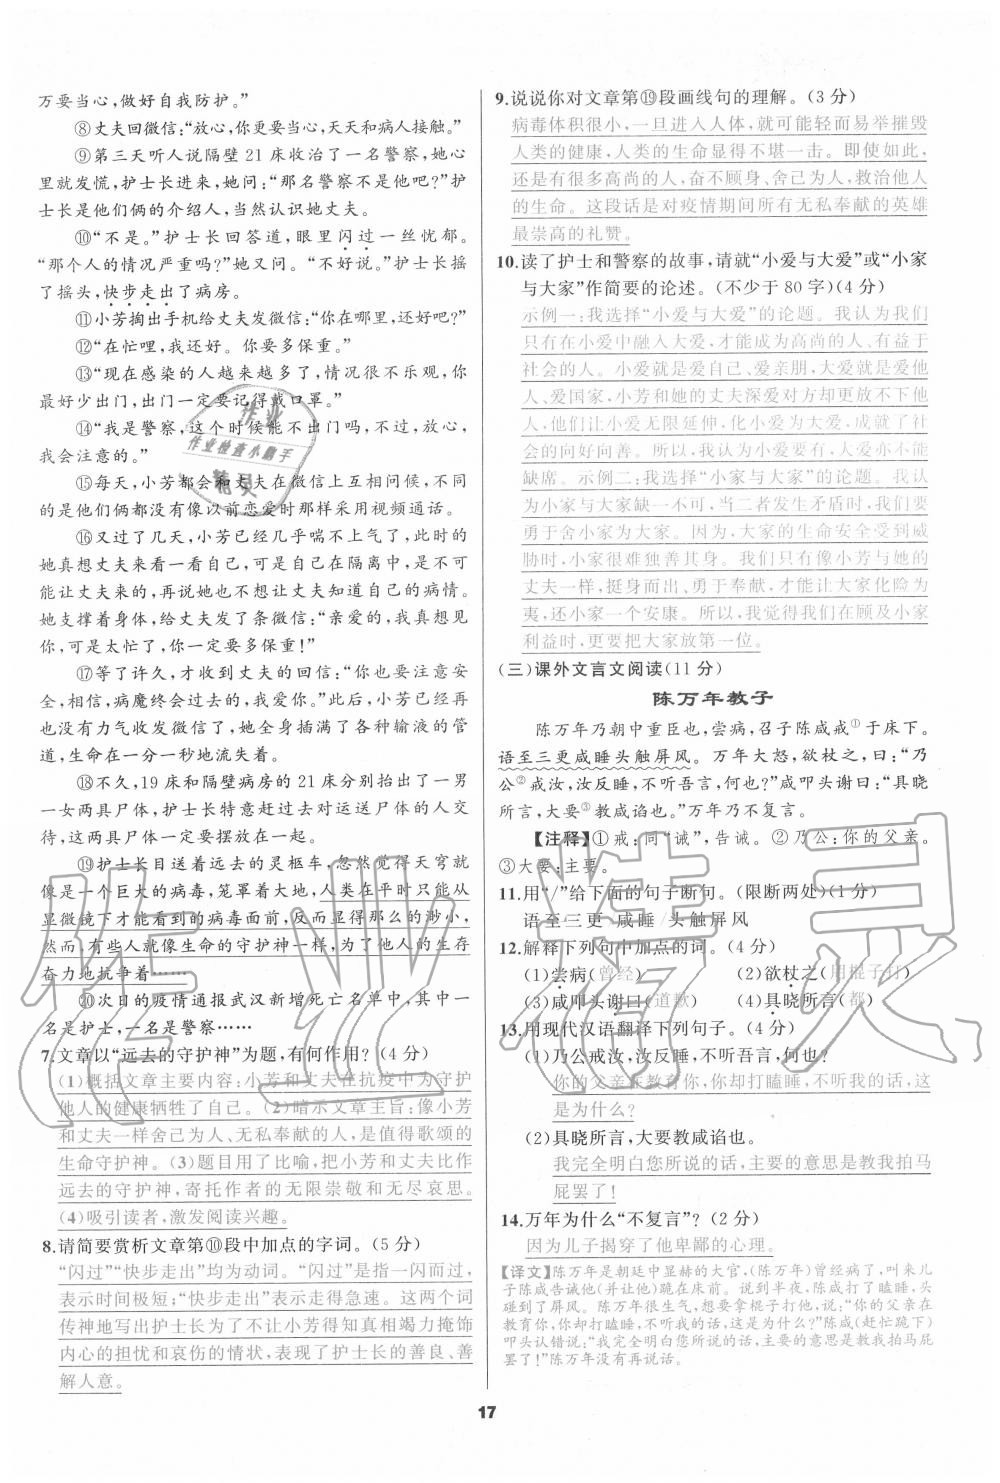 万要当心,做好自我防护。”
⑧丈夫回微信:“放心,你更要当心,天天和病人接触。”
⑨第三天听人说隔壁 21 床收治了一名警察,她心
里就发慌,护士长进来,她问:“那名警察不是他吧?”护
士长是他们俩的介绍人,当然认识她丈夫。
⑩“不是。”护士长回答道,眼里闪过一丝忧郁。
“那个人的情况严重吗?”她又问。“不好说。”护士长摇
了摇头,快步走出了病房。
⑪小芳掏出手机给丈夫发微信:“你在哪里,还好吧?”
⑫“在忙哩,我还好。你要多保重。”
⑬“现在感染的人越来越多了,情况很不乐观,你
最好少出门,出门一定要记得戴口罩。”
⑭“我是警察,这个时候能不出门吗,不过,放心,
我会注意的。”
⑮每天,小芳都会和丈夫在微信上互相问候,不同
的是他们俩都没有像以前恋爱时那样采用视频通话。
⑯又过了几天,小芳已经几乎喘不上气了,此时的
她真想丈夫来看一看自己,可是自己在隔离中,是不可
能让丈夫来的,再说她也不想让丈夫知道自己的病情。
她支撑着身体,给丈夫发了条微信:“亲爱的,我真想见
你,可是太忙了,你一定要多保重!”
⑰等了许久,才收到丈夫的回信:“你也要注意安
全,相信,病魔终会过去的,我爱你。”此后,小芳已经再
也没有力气收发微信了,她全身插满了各种输液的管
道,生命在一分一秒地流失着。
⑱不久,19 床和隔壁病房的 21 床分别抬出了一男
一女两具尸体,护士长特意赶过去对运送尸体的人交
待,这两具尸体一定要摆放在一起。
⑲护士长目送着远去的灵柩车,忽然觉得天穹就
像是一个巨大的病毒,笼罩着大地,人类在平时只能从
显微镜下才能看到的病毒面前,反而显得那么的渺小,
然而,有些人就像生命的守护神一样,为了他人的生存
奋力地抗争着……
⑳次日的疫情通报武汉新增死亡名单中,其中一
名是护士,一名是警察……
7.文章以“远去的守护神”为题,有何作用?(4 分)
(1)概括文章主要内容:小芳和丈夫在抗疫中为守护
他人的健康牺牲了自己。(2)暗示文章主旨:像小芳
和丈夫一样舍己为人、无私奉献的人,是值得歌颂的
生命守护神。(3)题目用了比喻,把小芳和丈夫比作
远去的守护神,寄托作者的无限崇敬和无尽哀思。
(4)吸引读者,激发阅读兴趣。
8.请简要赏析文章第⑩段中加点的字词。(5 分)
“闪过”“快步走出”均为动词。“闪过”是指一闪而过,
表示时间极短;“快步走出”表示走得急速。这两个词
传神地写出护士长为了不让小芳得知真相竭力掩饰
内心的担忧和哀伤的情状,表现了护士长的善良、善
解人意。
9.说说你对文章第⑲段画线句的理解。(3 分)
病毒体积很小,一旦进入人体,就可能轻而易举摧毁
人类的健康,人类的生命显得不堪一击。即使如此,
还是有很多高尚的人,奋不顾身、舍己为人,救治他人
的生命。这段话是对疫情期间所有无私奉献的英雄
最崇高的礼赞。
10.读了护士和警察的故事,请就“小爱与大爱”或“小家
与大家”作简要的论述。(不少于 80 字)(4 分)
示例一:我选择“小爱与大爱”的论题。我认为我们
只有在小爱中融入大爱,才能成为高尚的人、有益于
社会的人。小爱就是爱自己、爱亲朋,大爱就是爱他
人、爱国家,小芳和她的丈夫深爱对方却更放不下他
人,他们让小爱无限延伸,化小爱为大爱,成就了社会
的向好向善。所以,我认为小爱要有,大爱亦不能
缺席。示例二:我选择“小家与大家”的论题。我认
为小家与大家缺一不可,当二者发生矛盾时,我们要
勇于舍小家为大家。因为,大家的生命安全受到威
胁时,小家很难独善其身。我们只有像小芳与她的
丈夫一样,挺身而出、勇于奉献,才能让大家化险为
夷,还小家一个安康。所以,我觉得我们在顾及小家
利益时,更要把大家放第一位。
(三)课外文言文阅读(11 分)
陈万年教子
陈万年乃朝中重臣也,尝病,召子陈咸戒①于床下。
语至三更咸睡头触屏风。万年大怒,欲杖之,曰:“乃
公②戒汝,汝反睡,不听吾言,何也?”咸叩头谢曰:“具晓
所言,大要③教咸谄也。”万年乃不复言。
【注释】①戒:同“诫”,告诫。②乃公:你的父亲。
③大要:主要。
11.用“/”给下面的句子断句。(限断两处)(1 分)
语至三更/咸睡/头触屏风
12.解释下列句中加点的词。(4 分)
(1)尝病(曾经) (2)欲杖之(用棍子打)
(3)咸叩头谢曰(道歉) (4)具晓所言(都)
13.用现代汉语翻译下列句子。(4 分)
(1)乃公戒汝,汝反睡,不听吾言,何也?
你的父亲在教育你,你却打瞌睡,不听我的话,这
是为什么?
(2)具晓所言,大要教咸谄也。
我完全明白您所说的话,主要的意思是教我拍马
屁罢了!
14.万年为什么“不复言”?(2 分)
因为儿子揭穿了他卑鄙的心理。
【译文】陈万年是朝廷中显赫的大官,(陈万年)曾经病了,叫来儿
子陈咸告诫他(并让他)跪在床前。说到半夜,陈咸打了瞌睡,头
碰到了屏风。陈万年很生气,想要拿棍子打他,说:“你的父亲在
教育你,你却打瞌睡,不听我的话,这是为什么?”陈咸(赶忙跪下)
叩头认错说:“我完全明白您所说的话,主要的意思是教我拍马屁
罢了!”陈万年没有再说话。
17
作业
作业检查小助手
精灵
作业精灵